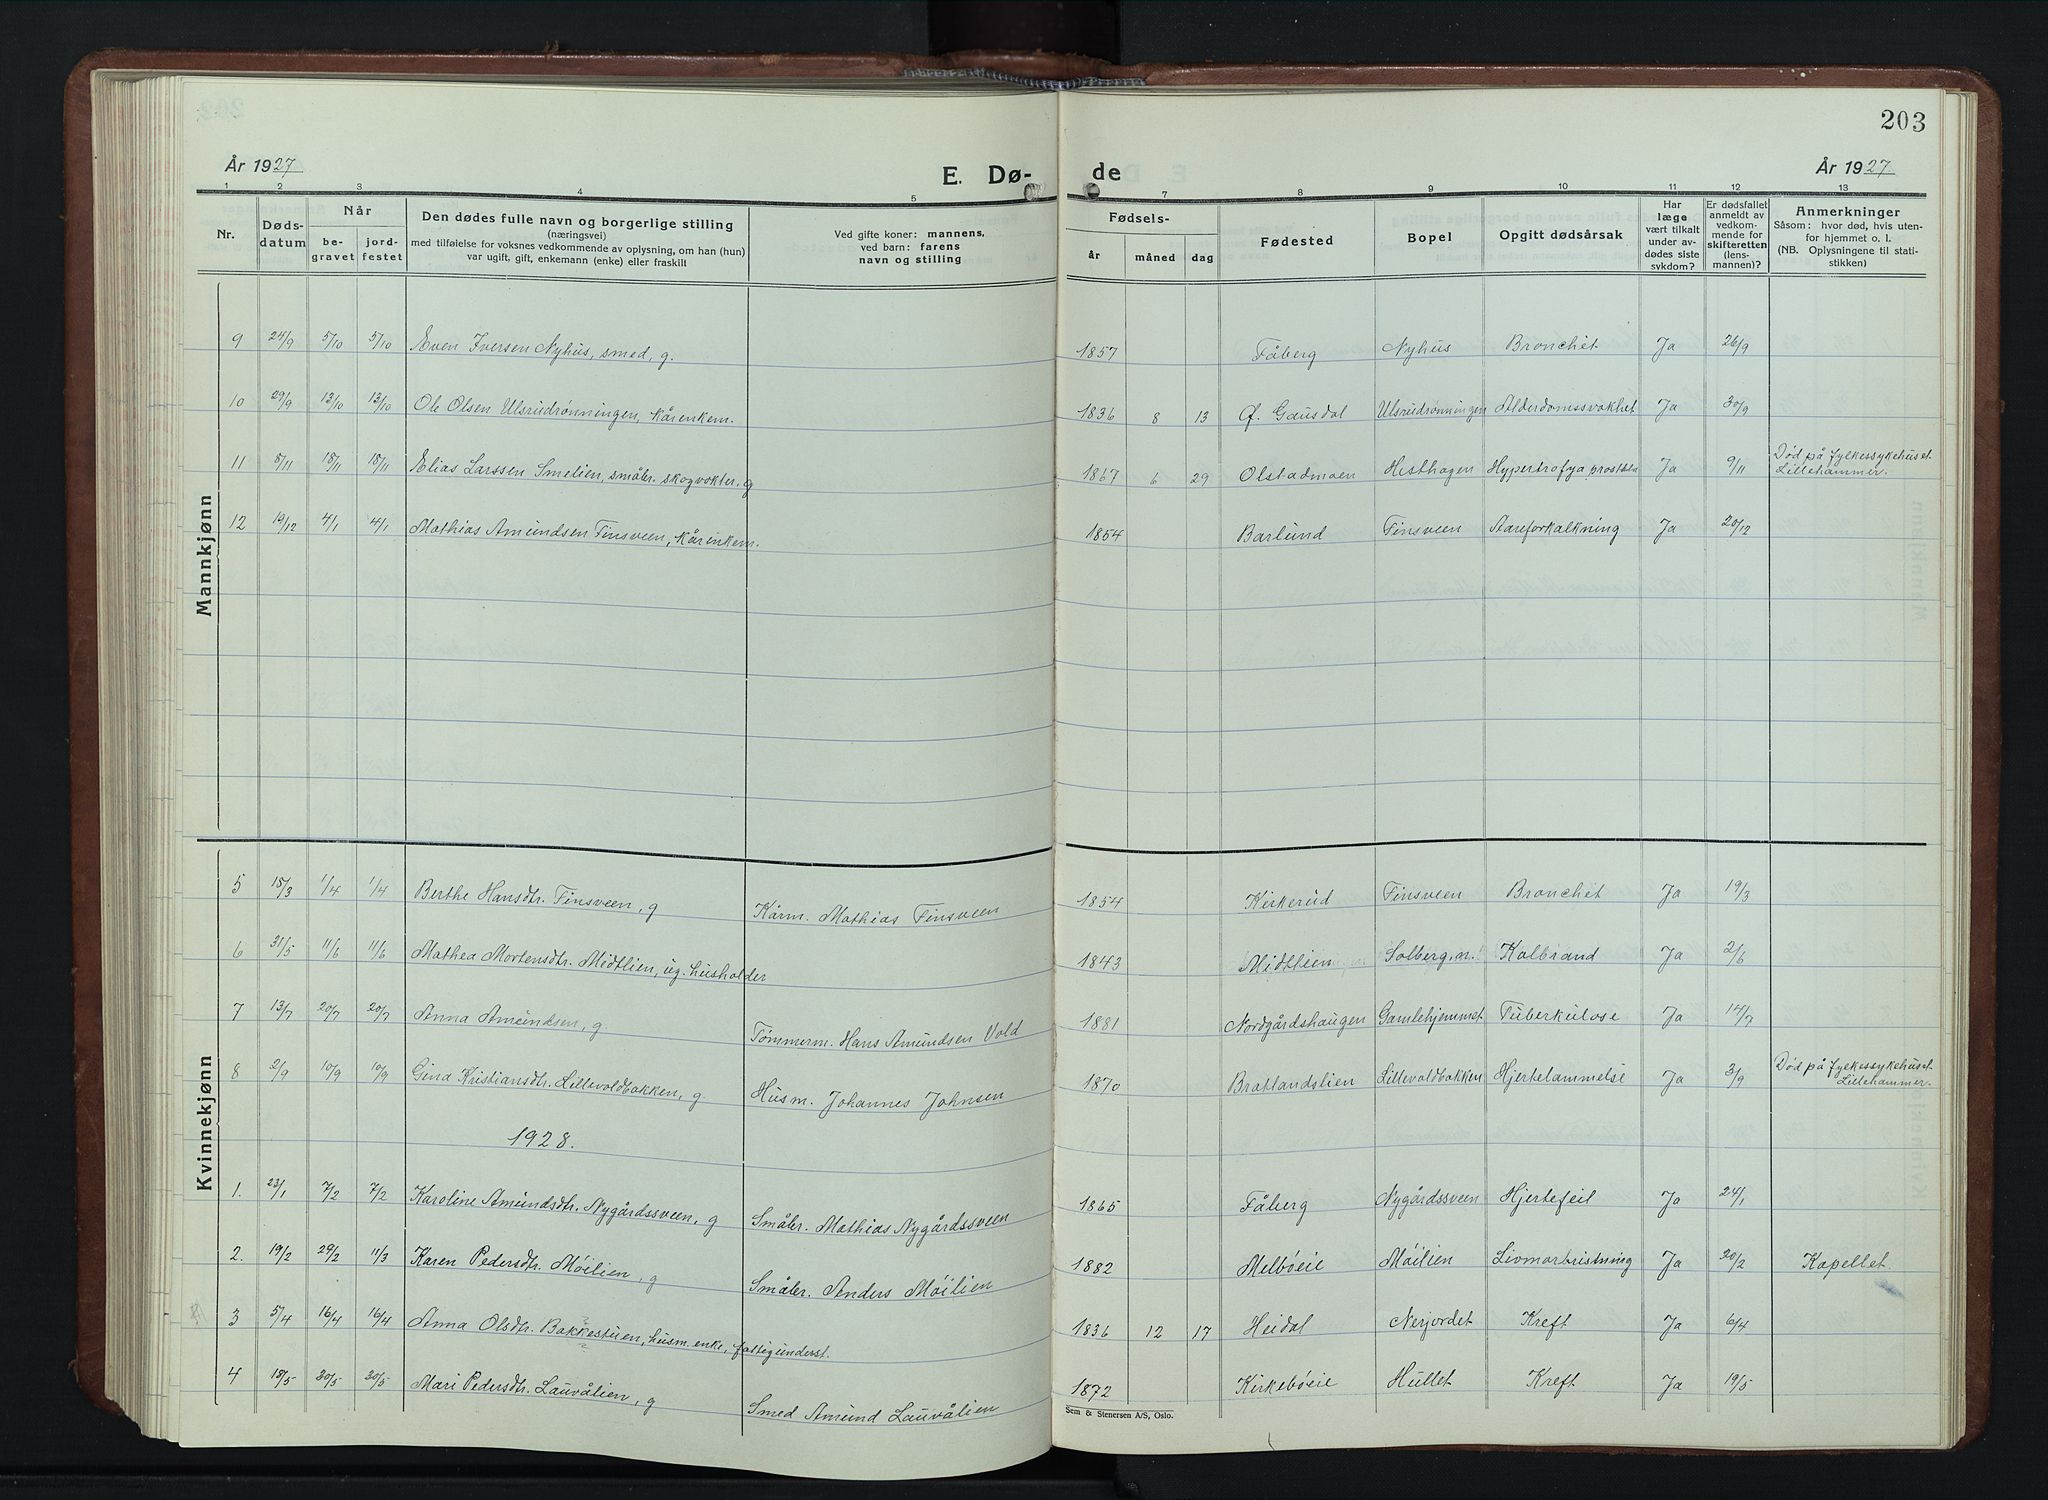 203
År 1927
E. Dø-
de
År 1927
1 2 3 4 5 7 8 9 10 11 12 13
Nr.
Døds-
datum
Når
be-
gravet
jord-
festet
Den dødes fulle navn og borgerlige stilling
(næringsvei)
med tilføielse for voksnes vedkommende av oplysning, om han (hun)
var ugift, gift, enkemann (enke) eller fraskilt
Ved gifte koner: mannens,
ved barn: farens
navn og stilling
Fødsels-
år måned dag
Fødested
Bopel
Opgitt dødsårsak
Har
læge
vært tilkalt
under av-
dødes siste
sykdom?
Er dødsfallet
anmeldt av
vedkom-
mende for
skifteretten
(lens-
mannen)?
Anmerkninger
Såsom: hvor død, hvis uten-
for hjemmet o. l.
(NB. Oplysningene til stati-
stikken)
Mannkjønn
9 24/9 5/10 5/10 Even Iversen Nyhus, smed, g. 1857 Fåberg Nyhus Bronchit Ja 26/9
10 29/9 13/10 13/10 Ole Olsen Ulsrudrønningen, kårenkem. 1836 8 13 Ø. Gausdal Ulsrudrønningen Alderdomssvakhet Ja 30/9
11 8/11 18/11 18/11 Elias Larssen Smelien, småbr. skogvokter, g 1867 6 29 Olstadmoen Hesthagen Hypertrofya prostata Ja 9/11 Død på fylkessykehuset
Lillehammer.
12 19/12 4/1 4/1 Mathias Amundsen Finsveen, kårenkem. 1854 Barlund Finsveen Aareforkalkning Ja 20/12
Kvinnekjønn
5 15/3 1/4 1/4 Berthe Hansdtr. Finsveen, g Kårm. Mathias Finsveen 1854 Kirkerud Finsveen Bronchit Ja 19/3
6 31/5 11/6 11/6 Mathea Mortensdtr. Midtlien, ug. husholder 1843 Midtlien Solberg, n. Kolbrand Ja 2/6
7 13/7 20/7 20/7 Anna Amundsen, g Tømmerm. Hans Amundsen Vold 1881 Nordgårdshaugen Gamlehjemmet Tuberkulose Ja 14/7
8 2/9 10/9 10/9 Gina Kristiansdtr. Lillevoldbakken, g Husm. Johannes Johnsen 1870 Bratlandslien Lillevoldbakken Hjertelammelse Ja 3/9 Død på fylkessykehuset
Lillehammer.
1928.
1. 23/1 7/2 7/2 Karoline Amundsdtr. Nygårdssveen, g Småbr. Mathias Nygårdssveen 1865 Fåberg Nygårdssveen Hjertefeil Ja 24/1
2. 19/2 29/2 11/3 Karen Pedersdtr. Möilien, g Småbr. Anders Möilien 1882 Melbøeie Möilien Livmorbristning Ja 20/2 Kapellet.
3 5/4 16/4 16/4 Anna Olsdtr. Bakkestuen, husm. enke, fattigunderst. 1836 12 17 Heidal Nerjordet Kreft Ja 6/4
4 18/5 30/5 30/5 Mari Pedersdtr. Lauvålien, g Smed Amund Lauvålien 1872 Kirkebøeie Hullet Kreft Ja 19/5
Sem & Stenersen A/S, Oslo.